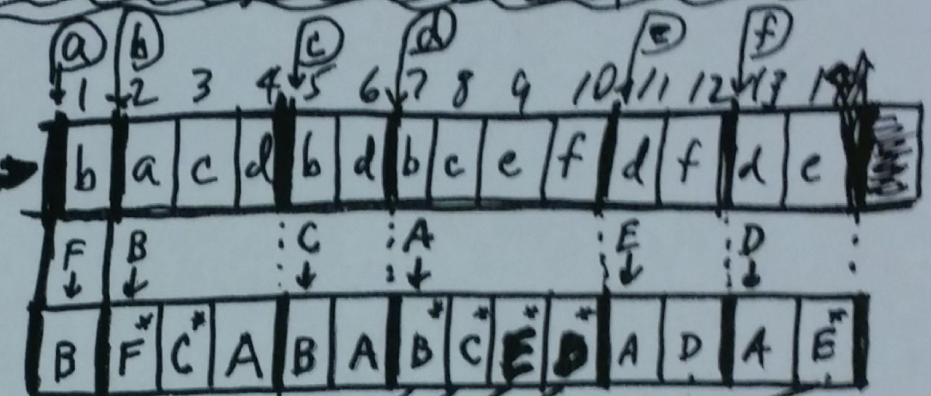 a b c d e f
1 2 3 4 5 6 7 8 9 10 11 12 13
b a c d b d b c e f d f d e
F B C A E D
B F* C* A B A B* C* E* D* A D A E*